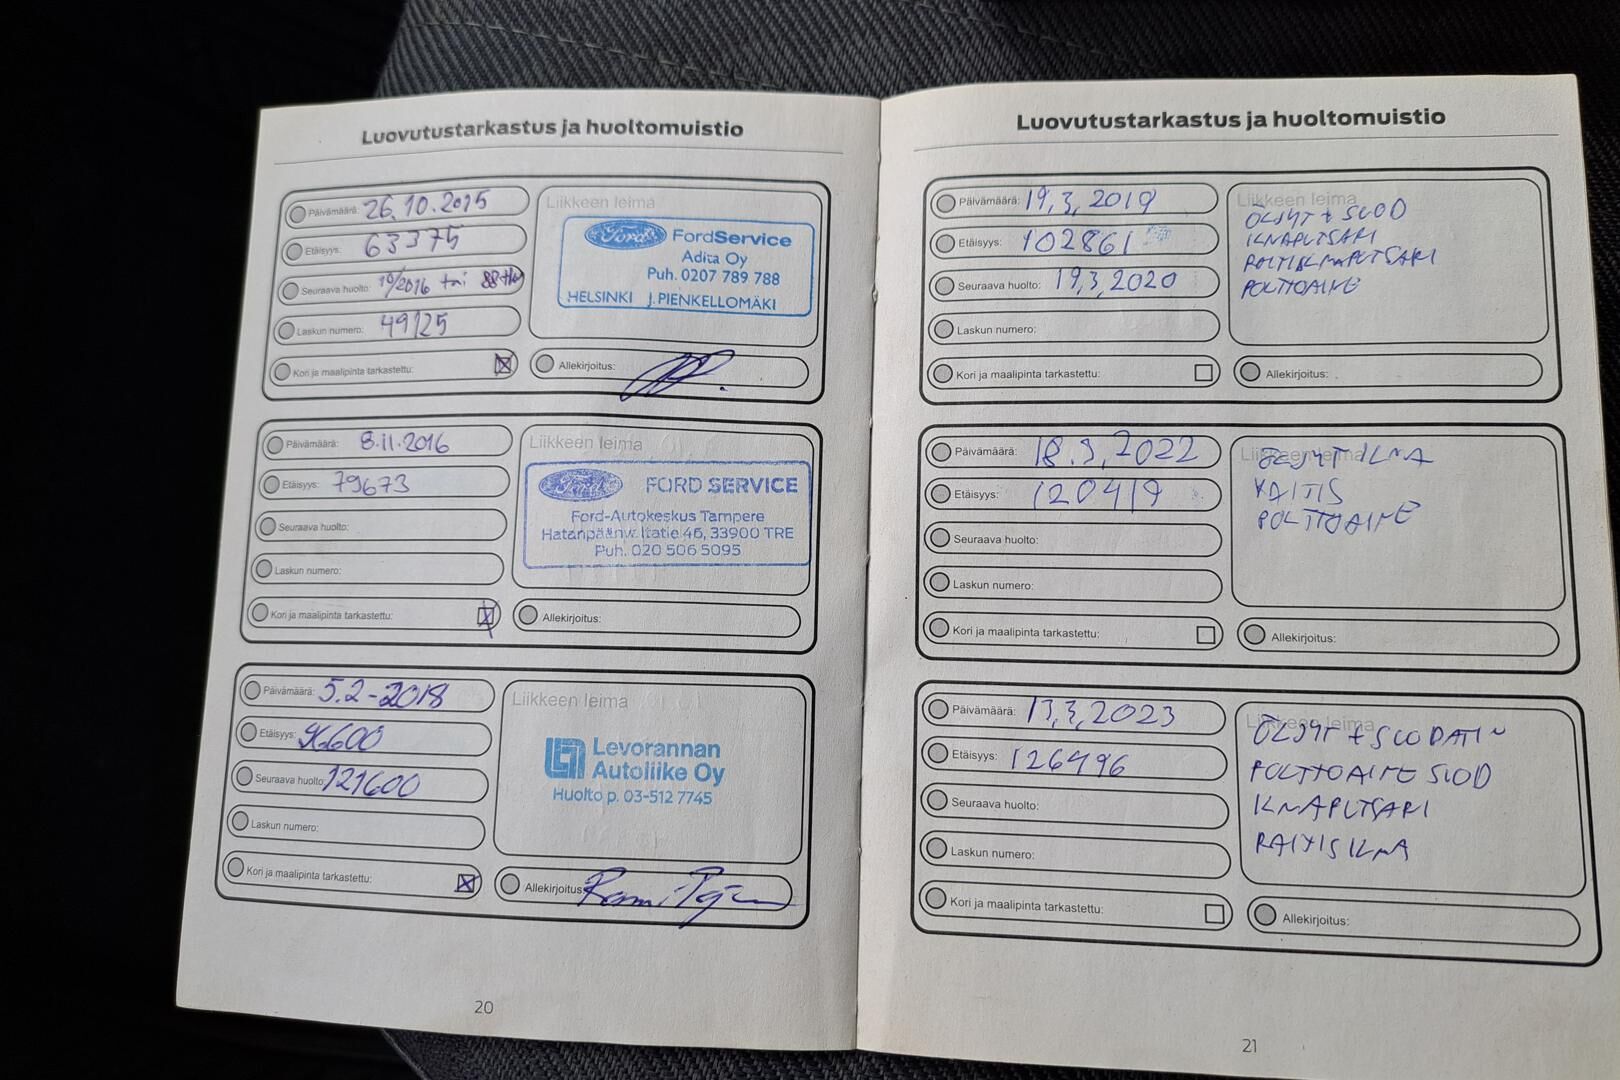 Luovutustarkastus ja huoltomuistio
Päivämäärä: 26.10.2015
Etäisyys: 63375
Seuraava huolto: 10/2016 tai 88tkm
Laskun numero: 49125
Kori ja maalipinta tarkastettu:
Liikkeen leima
Ford FordService
Adita Oy
Puh. 0207 789 788
HELSINKI J.PIENKELLOMÄKI
Allekirjoitus:
Päivämäärä: 8.11.2016
Etäisyys: 79673
Seuraava huolto:
Laskun numero:
Kori ja maalipinta tarkastettu:
Liikkeen leima
Ford FORD SERVICE
Ford-Autokeskus Tampere
Hatanpäänvaltatie 46, 33900 TRE
Puh. 020 506 5095
Allekirjoitus:
Päivämäärä: 5.2-2018
Etäisyys: 96600
Seuraava huolto: 121600
Laskun numero:
Kori ja maalipinta tarkastettu:
Liikkeen leima
Levorannan
Autoliike Oy
Huolto p. 03-512 7745
Allekirjoitus:
20
Luovutustarkastus ja huoltomuistio
Päivämäärä: 19,3,2019
Etäisyys: 102861
Seuraava huolto: 19,3,2020
Laskun numero:
Kori ja maalipinta tarkastettu:
Liikkeen leima
ÖLJYT + SUOD
ILMAPUTSARI
POLTTOAINE
Allekirjoitus:
Päivämäärä: 18.3,2022
Etäisyys: 120419
Seuraava huolto:
Laskun numero:
Kori ja maalipinta tarkastettu:
Liikkeen leima
ÖLJYT ILMA
RAITIS
POLTTOAINE
Allekirjoitus:
Päivämäärä: 13,3,2023
Etäisyys: 126496
Seuraava huolto:
Laskun numero:
Kori ja maalipinta tarkastettu:
Liikkeen leima
ÖLJYT + SUODATIN
POLTTOAINE SUOD
ILMAPUTSARI
RAITIS ILMA
Allekirjoitus:
21